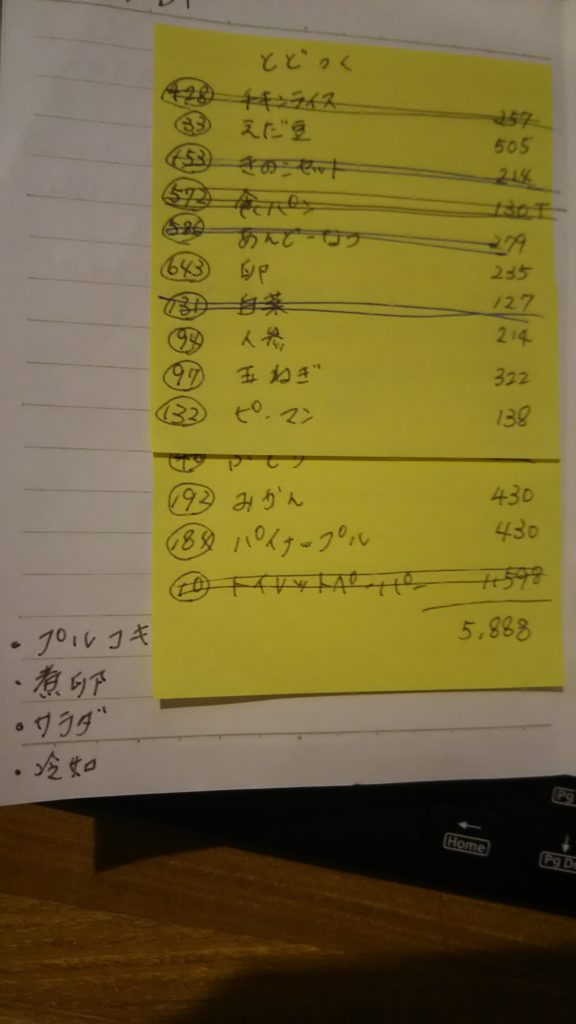 とどっく
428 チキンライス 257
33 えだ豆 505
153 きのこセット 214
572 食パン 130T
586 あんどーなつ 279
643 卵 235
131 白菜 127
94 人参 214
97 玉ねぎ 322
132 ピーマン 138
192 みかん 430
184 パイナップル 430
10 トイレットペーパー 1,598
5,888
・プルコギ
・煮卵
・サラダ
・冷奴
← Home
Pg
↓
Pg D